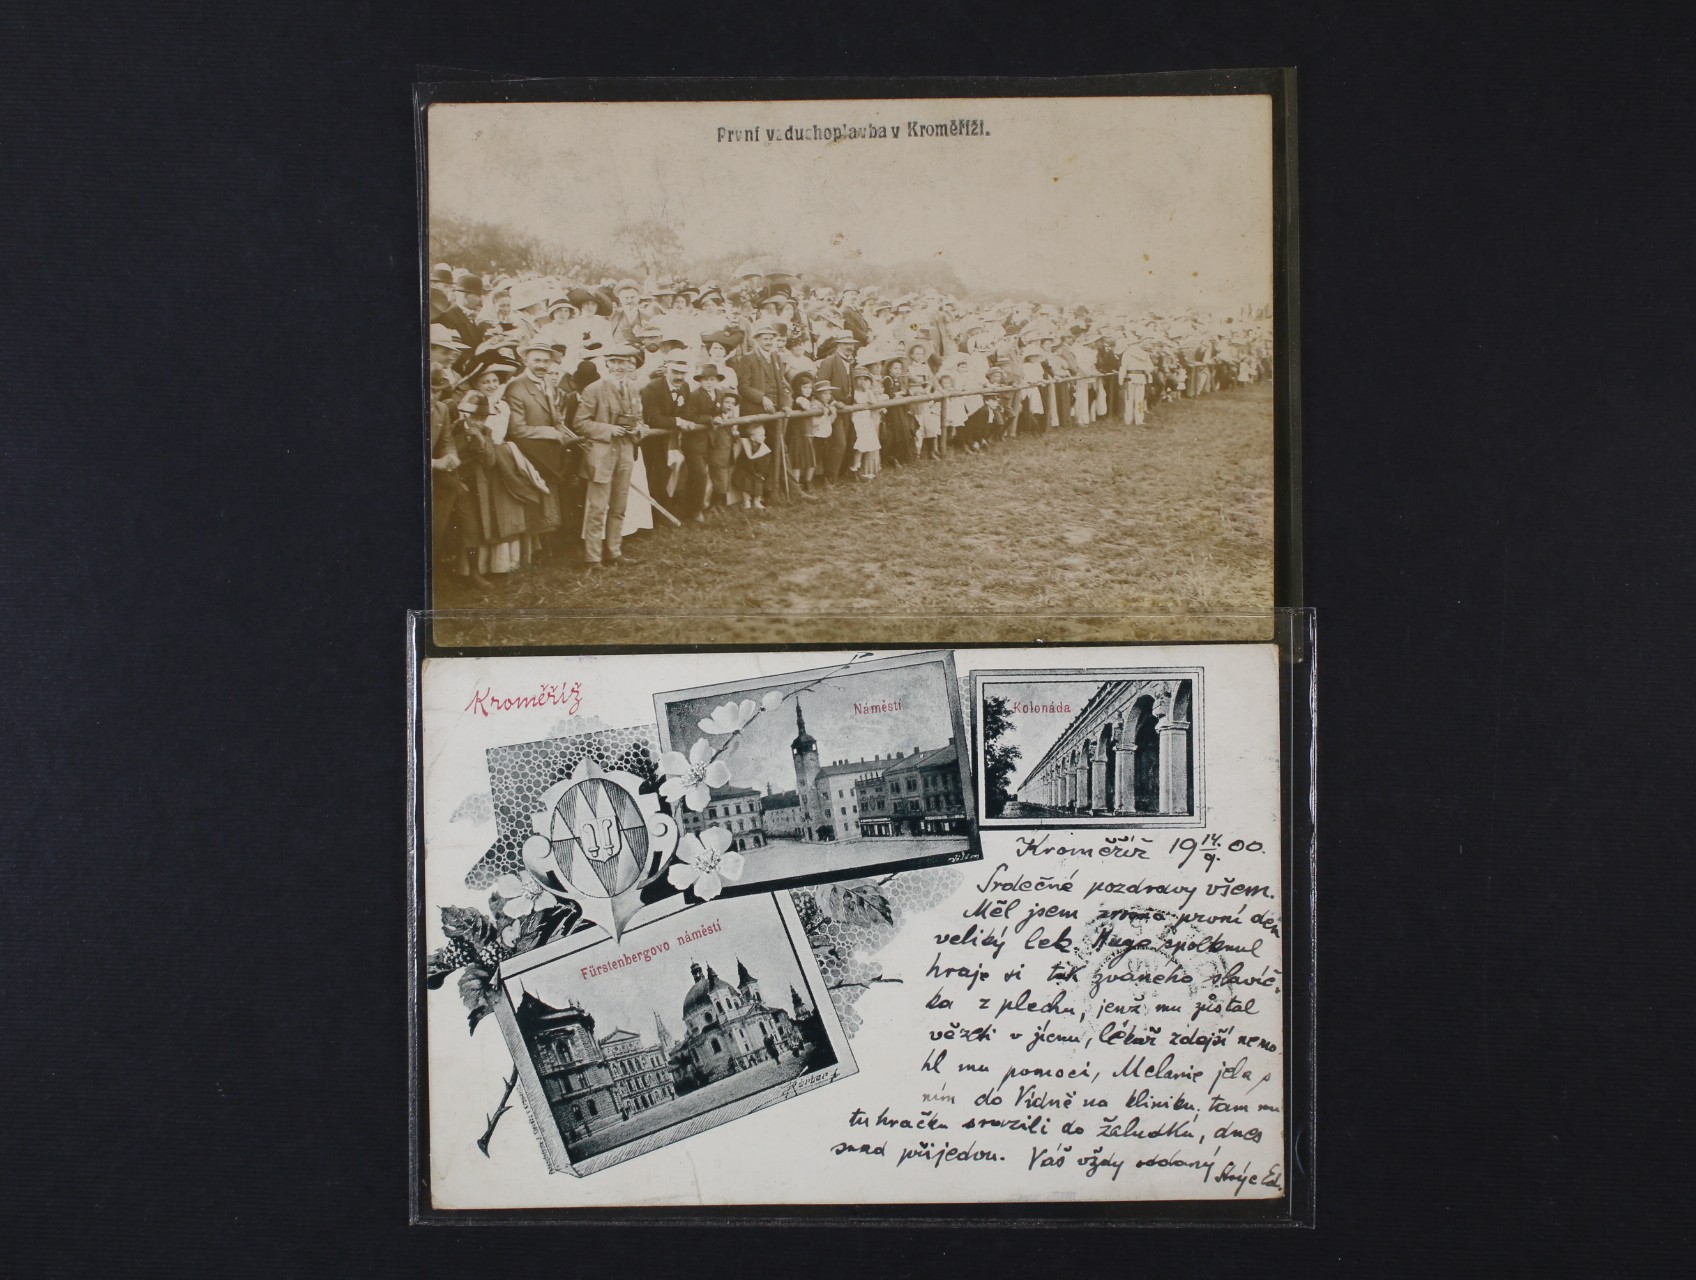 První vzduchoplavba v Kroměříži.
Kroměříž
Náměstí
Kolonáda
Fürstenbergovo náměstí
Kroměříž 19 14./9. 00.
Srdečné pozdravy všem.
Měl jsem první den
veliký lek. Hugo spolknul
hraje si tak zvaného slavíč-
ka z plechu, jenž mu zůstal
vězeti v jícnu, lékař zdejší nemo-
hl mu pomoci, Melanie jela s
ním do Vídně na kliniku, tam mu
tu hračku srazili do žaludku, dnes
snad přijedou. Váš vždy oddaný strýc Ed.